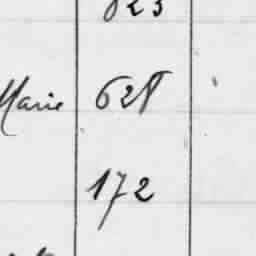 823
Marie 628
172